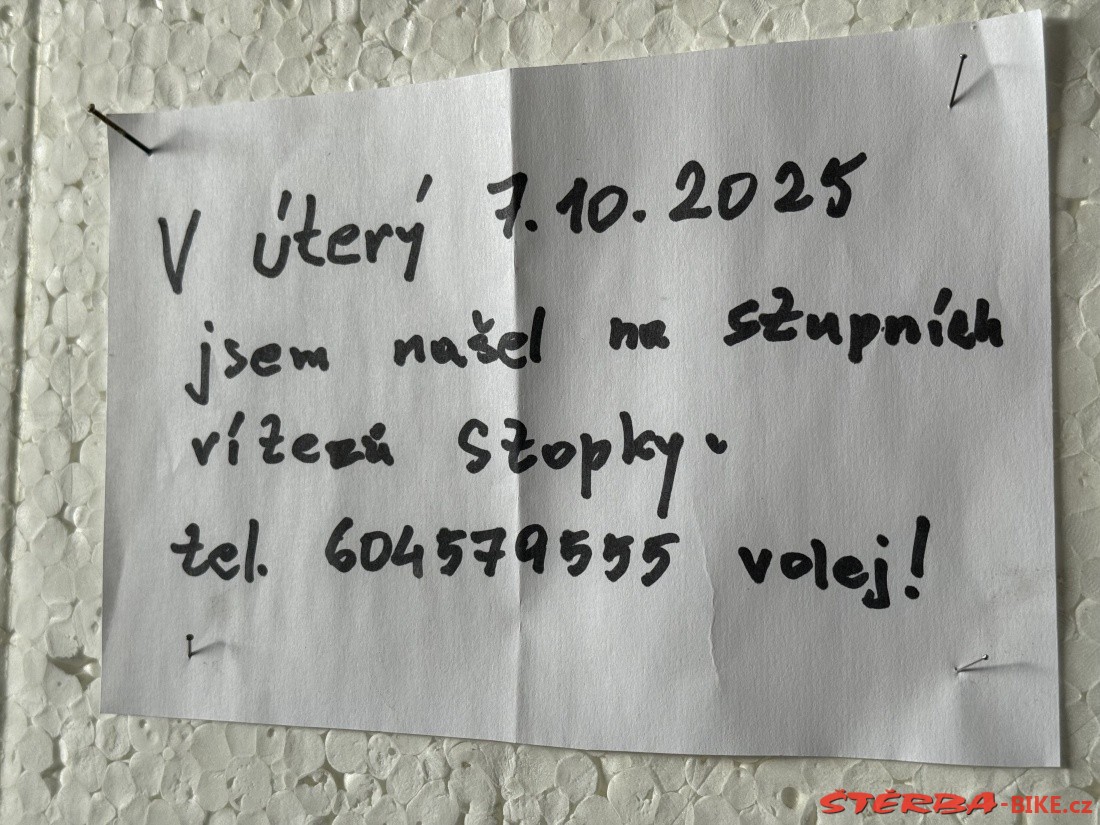 V úterý 7.10.2025
jsem našel na stupních
vítězů stopky.
tel. 604579555 volej!
ŠTĚRBA-BIKE.cz